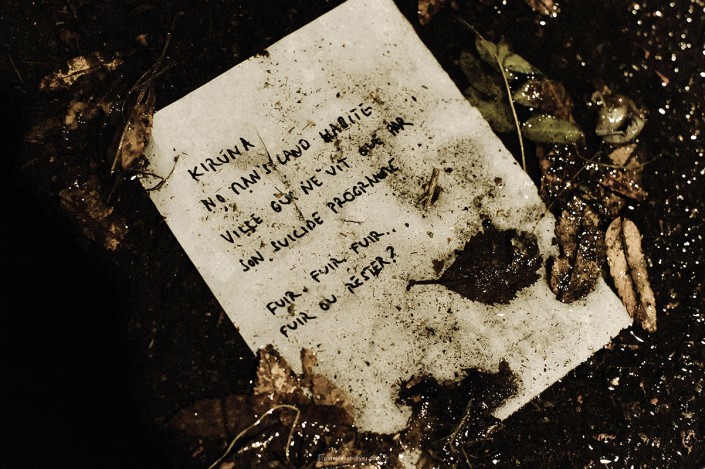 KIRUNA
NO MAN'S LAND HABITÉ
VILLE QUI NE VIT QUE PAR
SON SUICIDE PROGRAMMÉ
FUIR. FUIR. FUIR...
FUIR OU RESTER?